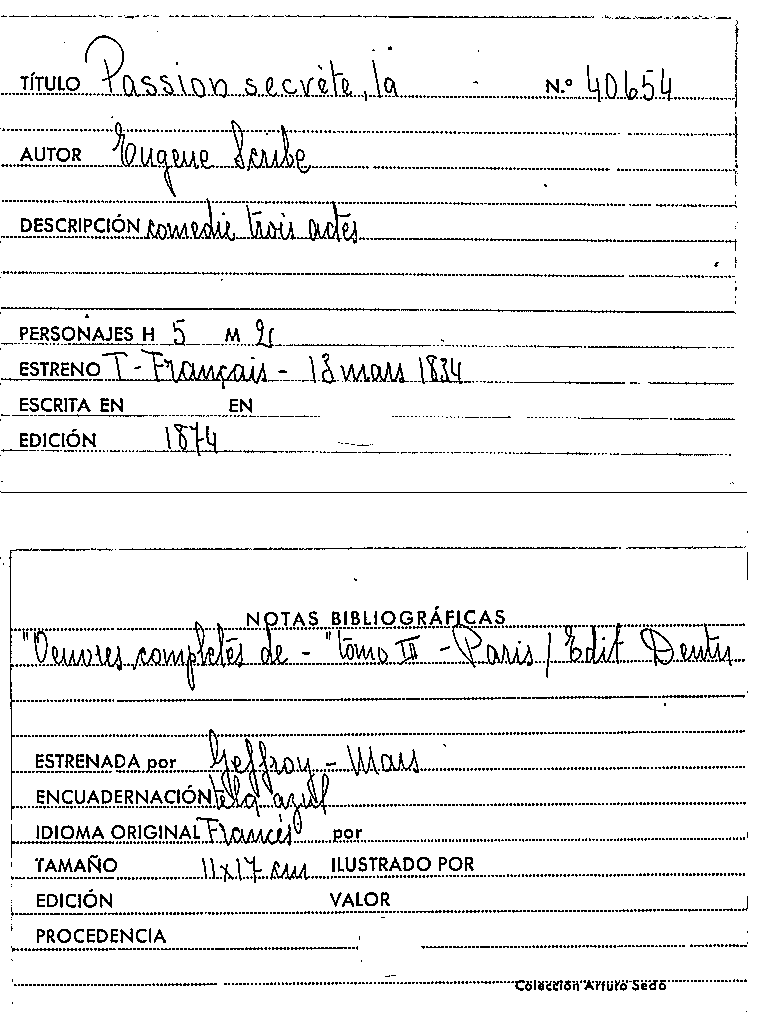 TÍTULO Passion secrète, la N.º 40654
AUTOR Eugene Scribe
DESCRIPCIÓN comedie trois actes
PERSONAJES H 5 M 2
ESTRENO T-Français - 13 mars 1834
ESCRITA EN EN
EDICIÓN 1874
NOTAS BIBLIOGRÁFICAS
"Oeuvres completés de - "tomo III - Paris / Edit Dentu
ESTRENADA por Geffroy - Mars
ENCUADERNACIÓN tela azul
IDIOMA ORIGINAL Francés por
TAMAÑO 11x17 cm ILUSTRADO POR
EDICIÓN VALOR
PROCEDENCIA
Colección Arturo Sedó